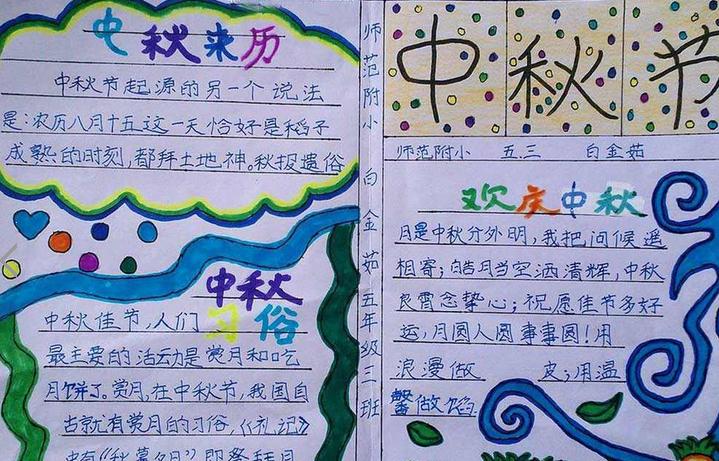 中秋来历
中秋节起源的另一个说法
是:农历八月十五这一天恰好是稻子
成熟的时刻,都拜土地神。秋报遗俗
中秋
习俗
中秋佳节,人们
最主要的活动是赏月和吃
月饼了。赏月,在中秋节,我国自
古就有赏月的习俗,《礼记》
中有“秋暮夕月”即祭拜月
师范附小 白金茹五年级三班
中秋节
师范附小 五.三 白金茹
欢庆中秋
月是中秋分外明,我把问候遥
相寄;皓月当空洒清辉,中秋
良宵念挚心;祝愿佳节多好
运,月圆人圆事事圆!用
浪漫做 皮;用温
馨做馅